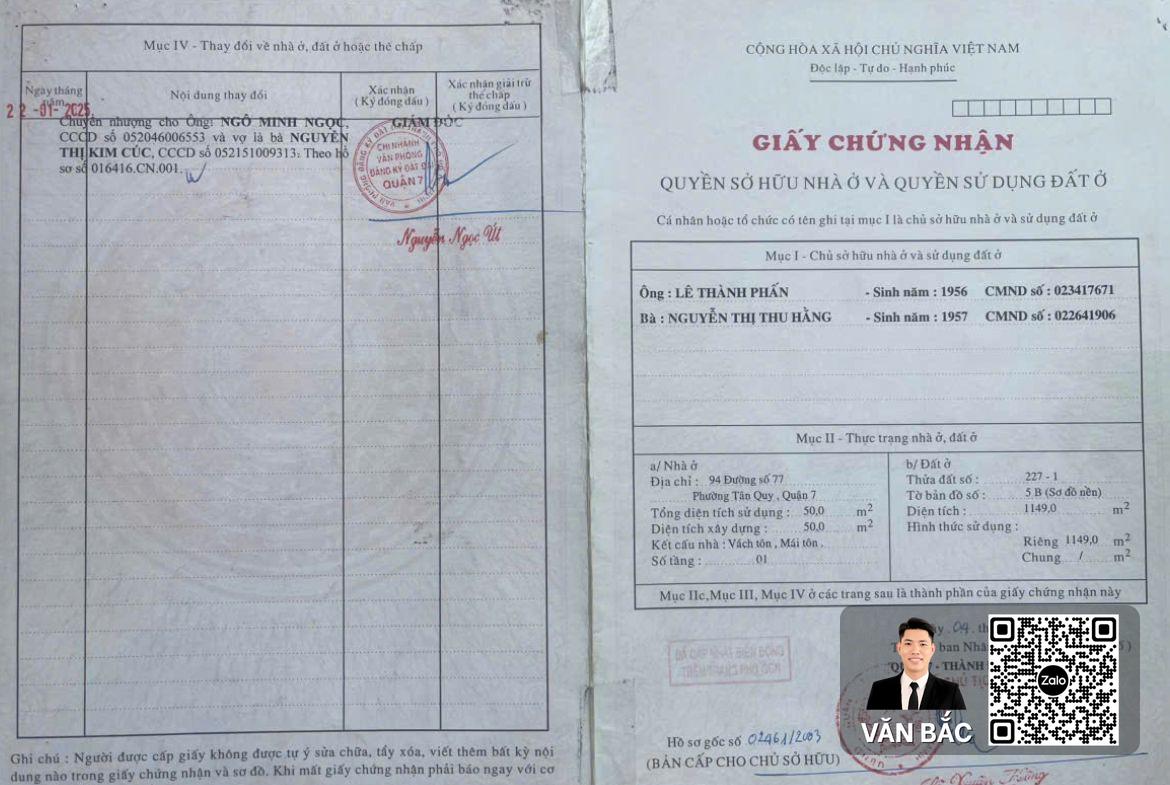 Mục IV - Thay đổi về nhà ở, đất ở hoặc thế chấp
Ngày tháng năm
Nội dung thay đổi
Xác nhận
( Ký đóng dấu )
Xác nhận giải trừ
thế chấp
( Ký đóng dấu )
22-01-2025
Chuyển nhượng cho Ông: NGÔ MINH NGỌC,
CCCD số 052046006553 và vợ là bà NGUYỄN
THỊ KIM CÚC, CCCD số 052151009313; Theo hồ
sơ số 016416.CN.001.
GIÁM ĐỐC
CHI NHÁNH
VĂN PHÒNG
ĐĂNG KÝ ĐẤT ĐAI
QUẬN 7
Nguyễn Ngọc Út
Ghi chú : Người được cấp giấy không được tự ý sửa chữa, tẩy xóa, viết thêm bất kỳ nội
dung nào trong giấy chứng nhận và sơ đồ. Khi mất giấy chứng nhận phải báo ngay với cơ
CỘNG HÒA XÃ HỘI CHỦ NGHĨA VIỆT NAM
Độc lập - Tự do - Hạnh phúc
GIẤY CHỨNG NHẬN
QUYỀN SỞ HỮU NHÀ Ở VÀ QUYỀN SỬ DỤNG ĐẤT Ở
Cá nhân hoặc tổ chức có tên ghi tại mục I là chủ sở hữu nhà ở và sử dụng đất ở
Mục I - Chủ sở hữu nhà ở và sử dụng đất ở
Ông : LÊ THÀNH PHẤN - Sinh năm : 1956 CMND số : 023417671
Bà : NGUYỄN THỊ THU HẰNG - Sinh năm : 1957 CMND số : 022641906
Mục II - Thực trạng nhà ở, đất ở
a/ Nhà ở
Địa chỉ : 94 Đường số 77
Phường Tân Quy , Quận 7
Tổng diện tích sử dụng : 50,0 m2
Diện tích xây dựng : 50,0 m2
Kết cấu nhà : Vách tôn , Mái tôn .
Số tầng : 01
b/ Đất ở
Thửa đất số : 227 - 1
Tờ bản đồ số : 5 B (Sơ đồ nền)
Diện tích : 1149,0 m2
Hình thức sử dụng :
Riêng 1149,0 m2
Chung / m2
Mục IIc,Mục III, Mục IV ở các trang sau là thành phần của giấy chứng nhận này
04
ban Nhâ
- THÀNH
ĐÃ CẬP NHẬT BIẾN ĐỘNG
Zalo
VĂN BẮC
Hồ sơ gốc số 02461/2003
(BẢN CẤP CHO CHỦ SỞ HỮU)